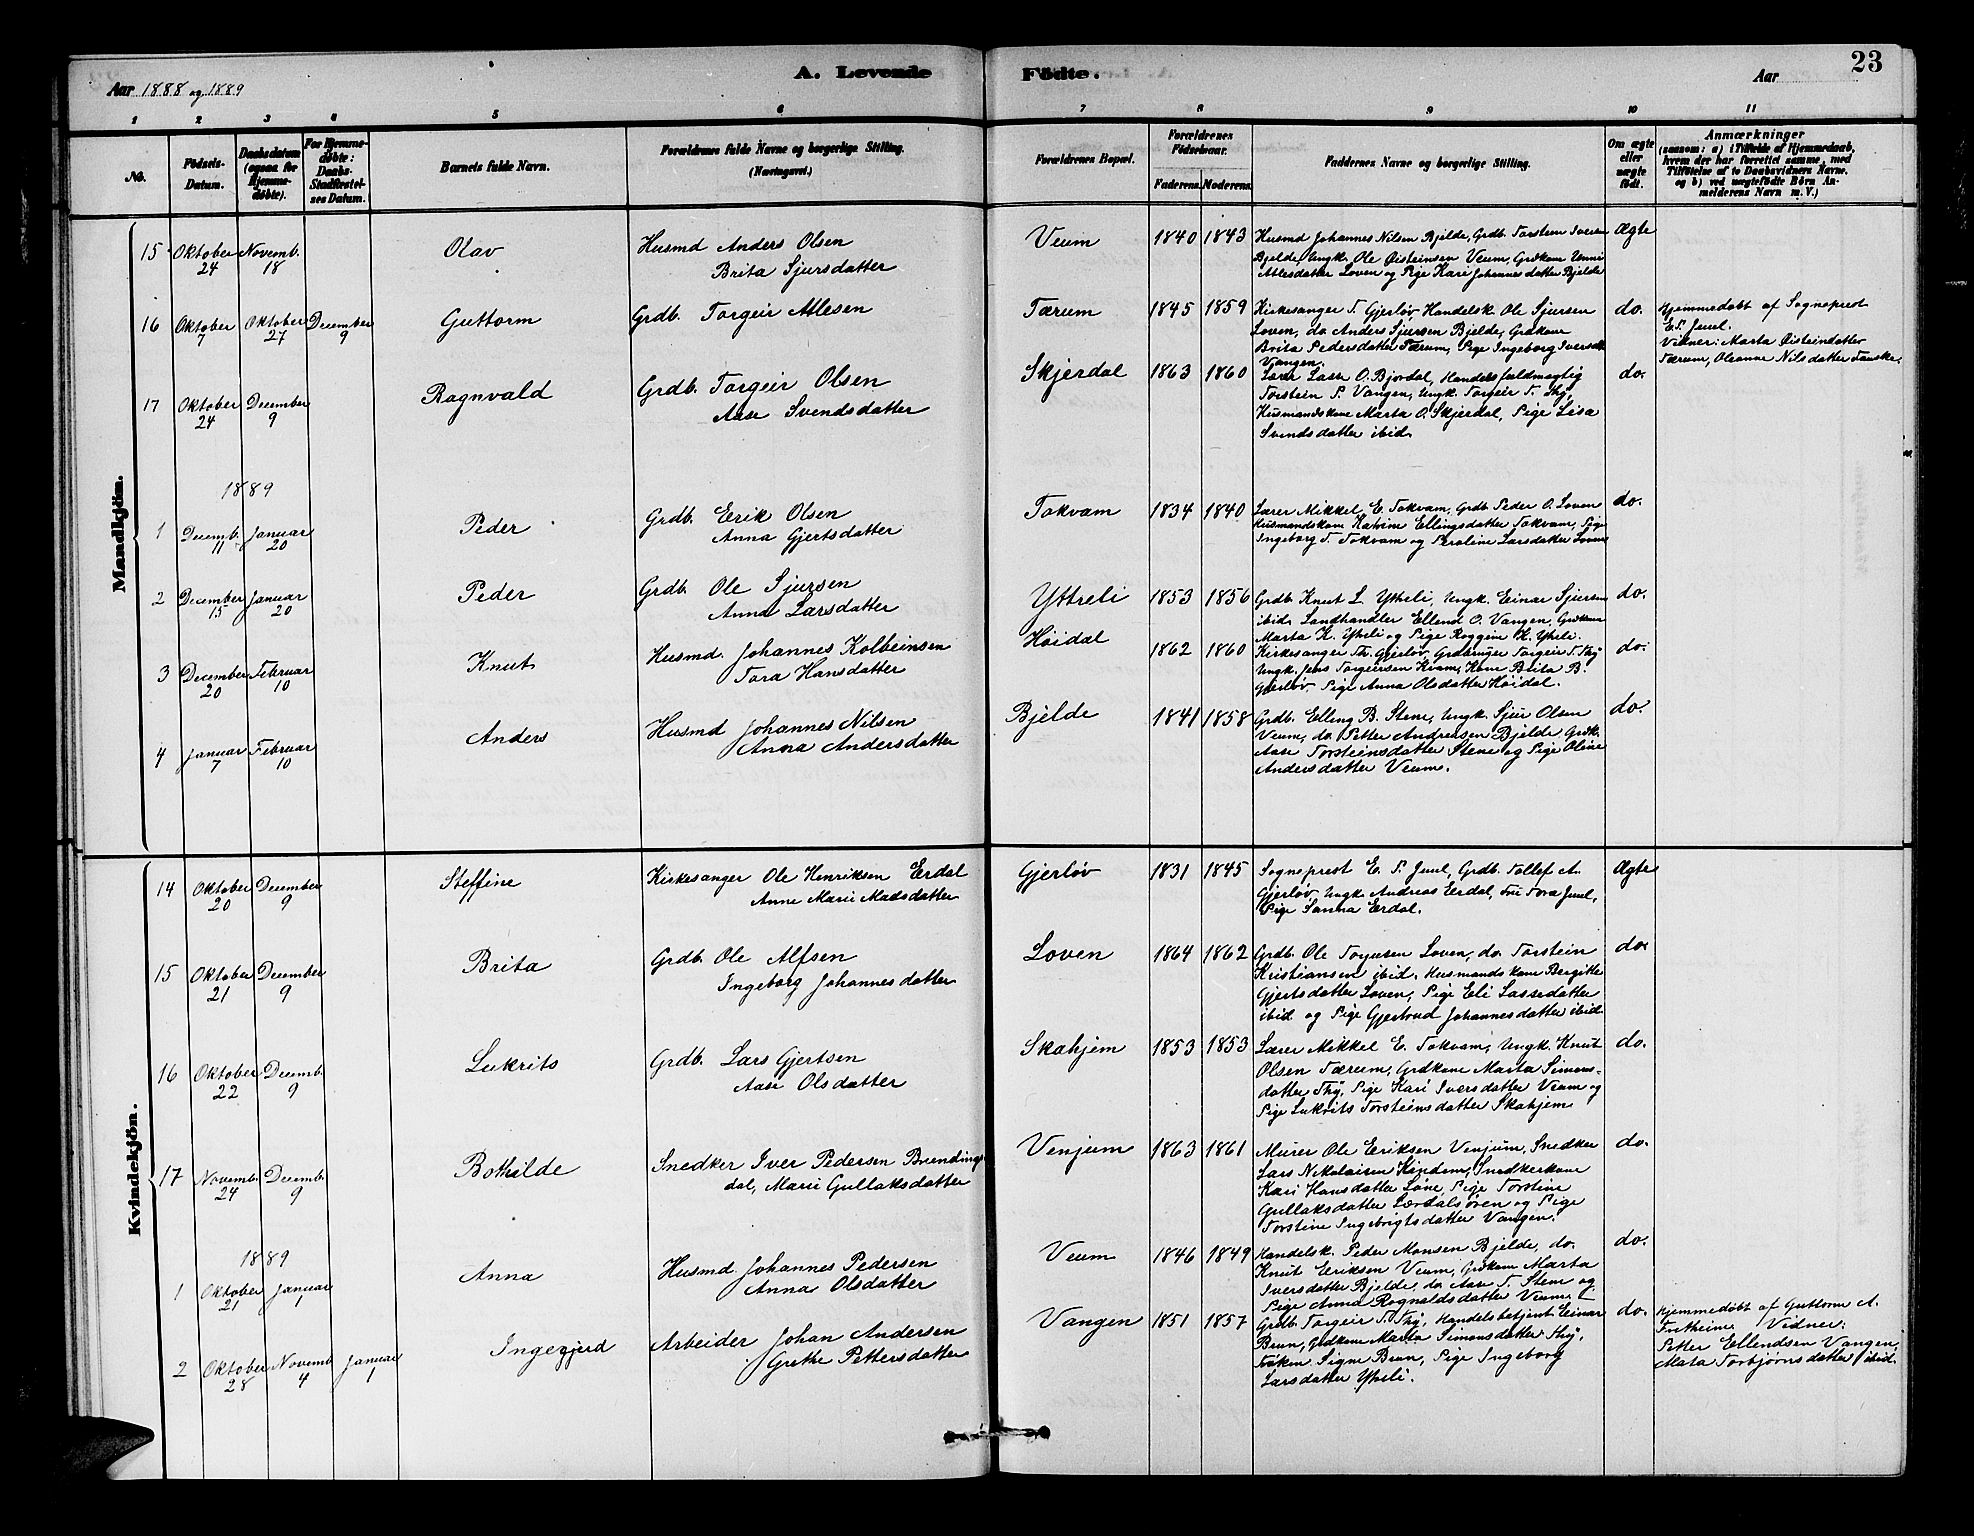 Aar 1888 og 1889
A. Levende
Födte.
Aar
23
1 2 3 4 5 6 7 8 9 10 11
No.
Födsels-Datum.
Daabsdatum (ogsaa for Hjemme-døbte).
For Hjemme-døbte: Daabs-Stadfæstel-ses Datum.
Barnets fulde Navn.
Forældrenes fulde Navne og borgerlige Stilling. (Næringsvei.)
Forældrenes Bopæl.
Forældrenes Födselsaar.
Faderens. Moderens.
Faddernes Navne og borgerlige Stilling.
Om ægte eller uægte født.
Anmærkninger
(saasom: a) i Tilfælde af Hjemmedaab,
hvem der har forrettet samme, med
Tilføielse af to Daabsvidners Navne,
og b) ved uægtefødte Børn An-
melderens Navn m. V.)
Mandkjön.
15 Oktober 24 Novemb. 18 Olav Husmd Anders Olsen
Brita Sjursdatter
Veum 1840 1843 Husmd Johannes Nilsen Bjelde, Grdb. Torstein Iversen
Bjelde, Ungk. Ole Øisteinsen Veum, Grdkone
Atlesdatter Loven og Pige Kari Johannesdatter Bjelde
Ægte
16 Oktober 7 Oktober 27 December 9 Guttorm Grdb. Torgeir Atlesen
Tærum 1845 1859 Kirkesanger T. Gjerløv, Handelsk. Ole Sjursen
Loven, do Anders Sjursen Bjelde, Grdkone
Brita Pedersdatter Tærum, Pige Ingeborg Iversdtr
Vangen.
do.
Hjemmedøbt af Sogneprest
E. S. Juul.
Vidner: Marta Øisteindatter
Tærum, Oleanne Nilsdatter Fanske.
17 Oktober 24 December 9 Ragnvald Grdb. Torgeir Olsen
Aase Svendsdatter
Skjerdal 1863 1860 Lærer Lasse O. Bjordal, Handelsfuldmægtig
Torstein P. Vangen, Ungk. Torgeir T. Thy,
Husmandskone Marta O. Skjerdal, Pige Lisa
Svendsdatter ibid.
do.
1889
1 Decemb. 11 Januar 20 Peder Grdb. Erik Olsen
Anna Gjertsdatter
Tokvam 1834 1840 Lærer Mikkel E. Tokvam, Grdb. Peder O. Loven
Husmandskone Katrine Ellingsdatter Tokvam, Pige
Ingeborg T. Tokvam og Peroline Larsdatter Loven
do.
2 December 15 Januar 20 Peder Grdb. Ole Sjursen
Anna Larsdatter
Yttreli 1853 1856 Grdb. Knut L. Ytreli, Ungk. Einar Sjursen
ibid. Landhandler Ellend O. Vangen, Grdkone
Marta K. Ytreli og Pige Roggine K. Ytreli.
do.
3 December 20 Februar 10 Knut Husmd. Johannes Kolbeinsen
Tora Hansdatter
Höidal 1862 1860 Kirkesanger Th. Gjerløv, Grdbruger Torgeir T. Thy
Ungk. Jens Torgeirsen Kvam, Kone Brita B.
Gjerløv, Pige Anna Olsdatter Höidal.
do.
4 Januar 7 Februar 10 Anders Husmd Johannes Nilsen
Anna Andersdatter
Bjelde 1841 1858 Grdb. Elling B. Stene, Ungk. Sjur Olsen
Veum, do. Petter Andreasen Bjelde Grdk.
Aase Torsteinsdatter Stene og Pige Oline
Andersdatter Veum.
do.
Kvindekjön.
14 Oktober 20 December 9 Steffine Kirkesanger Ole Henriksen Erdal
Anne Marie Madsdatter
Gjerløv 1831 1845 Sogneprest E. S. Juul, Grdb. Tollef A.
Gjerløv, Ungk. Andreas Erdal, Fru Tora Juul,
Pige Sanna Erdal.
Ægte
15 Oktober 21 December 9 Brita Grdb. Ole Alfsen
Ingeborg Johannesdatter
Loven 1864 1862 Grdb. Ole Loven, do. Torstein
Kristiansen ibid. Husmandskone Bergitte
Gjertsdatter Loven, Pige Eli Lassedatter
ibid og Pige Gjertrud Johannesdatter ibid.
do.
16 Oktober 22 Decemb. 9 Lukrits Grdb. Lars Gjertsen
Aase Olsdatter
Skahjem 1853 1853 Lærer Mikkel E. Tokvam, Ungk. Knut
Olsen Tærum, Grdkone Marta Simons-
datter Thy, Pige Kari Iversdatter Veum og
Pige Lukrits Torsteinsdatter Skahjem.
do.
17 Novemb. 24 Decemb. 9 Bothilde Snedker Iver Pedersen Brendings-
dal, Marie Gullaksdatter
Venjum 1863 1861 Murer Ole Eriksen Venjum, Snedker
Lars Nikolaisen, Snedkerkone
Kari Hansdatter Lone, Pige Torstine
Gullaksdatter Lærdalsøren og Pige
Torstine Ingebrigtsdatter Vangen.
do.
1889
1 Oktober 21 Januar 1 Anna Husmd. Johannes Pedersen
Anna Olsdatter
Veum 1846 1849 Handelsk. Peder Monsen Bjelde, do.
Knut Eriksen Veum, Grdkone Marta
Iversdatter Bjelde, do Aase T. Stene og
Pige Anna Rognaldsdatter Veum.
do.
2 Oktober 28 Novemb 4 Januar 1 Ingegjerd Arbeider Johan Andersen
Grethe Pettersdatter
Vangen 1851 1857 Grdb. Torgeir T. Thy, Handelsbetjent Einar
Brun, Grdkone Marta Simonsdatter Thy,
Frøken Signe Brun, Pige Ingeborg
Larsdatter Ytreli.
do.
Hjemmedøbt af Guttorm A.
Fretheim. Vidner:
Petter Ellendsen Vangen,
Mata Torbjørnsdatter ibid.